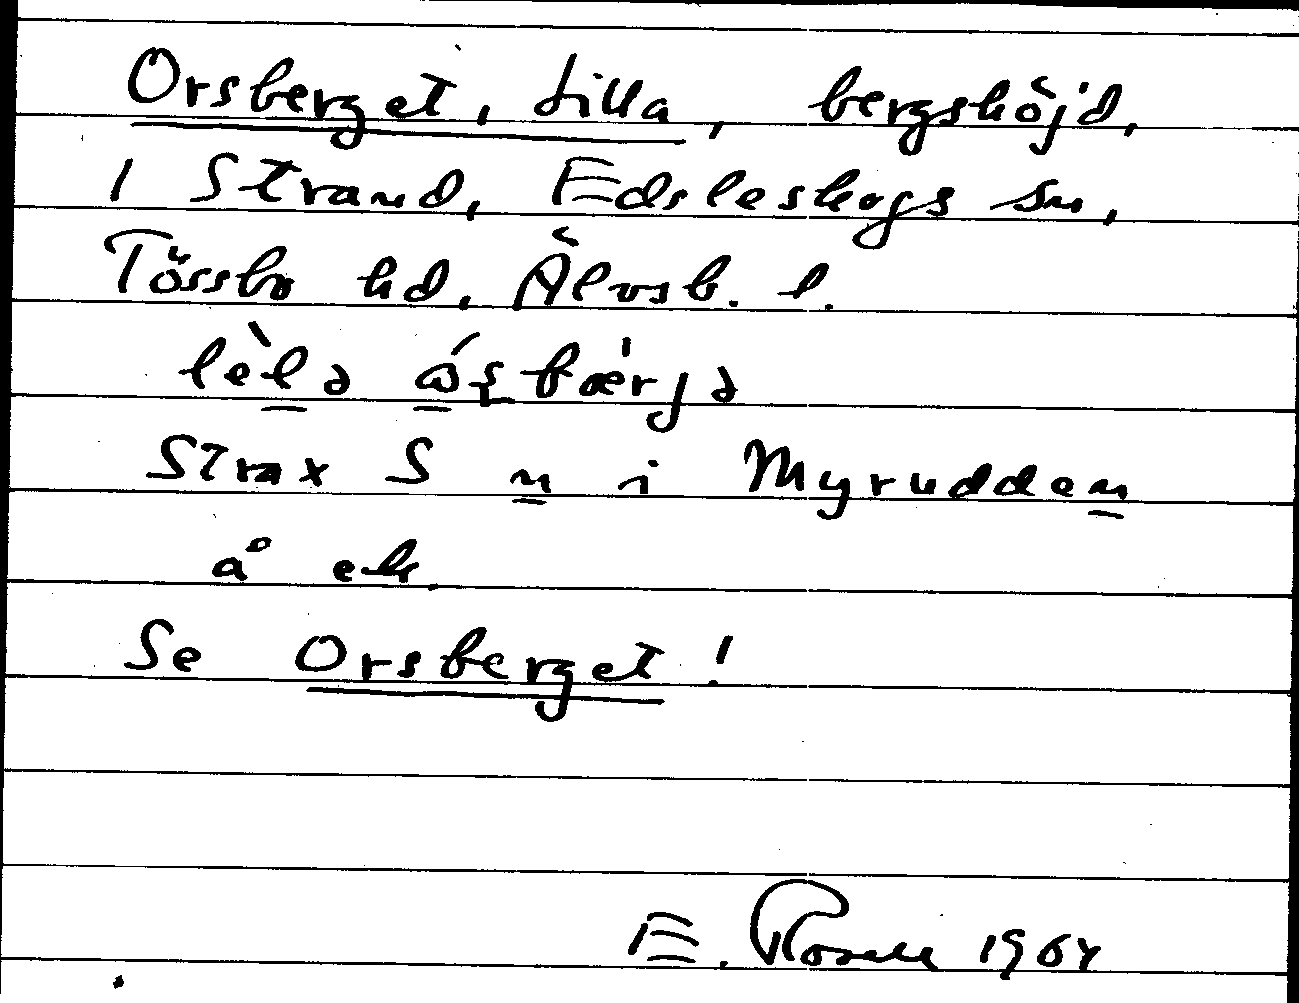 Orsberget, Lilla, bergshöjd,
i Strand, Edsleskogs sn,
Tössbo hd, Älvsb. l.
Strax S n i Myrudden
å ek.
Se Orsberget!
E. Rosell 1964